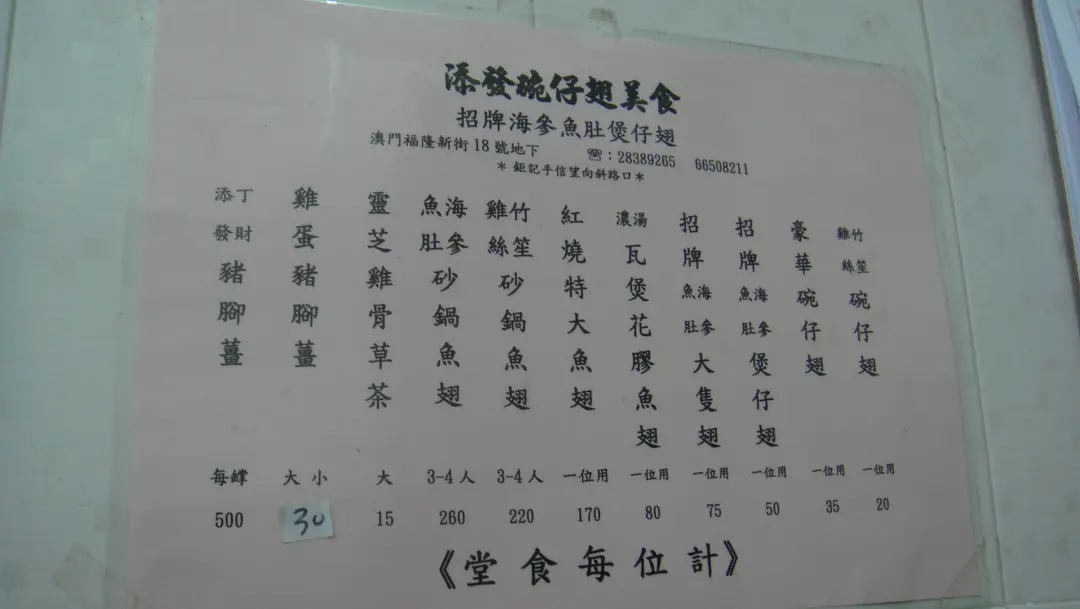 添發碗仔翅美食
招牌海參魚肚煲仔翅
澳門福隆新街18號地下 ☎:28389265 66508211
*鉅記手信望向斜路口*
雞竹絲笙碗仔翅 一位用 20
豪華碗仔翅 一位用 35
招牌魚海肚參煲仔翅 一位用 50
招牌魚海肚參大隻翅 一位用 75
濃湯瓦煲花膠魚翅 一位用 80
紅燒特大魚翅 一位用 170
雞竹絲笙砂鍋魚翅 3-4人 220
魚海肚參砂鍋魚翅 3-4人 260
靈芝雞骨草茶 大 15
雞蛋豬腳薑 大小 30
添丁發財豬腳薑 每罉 500
《堂食每位計》